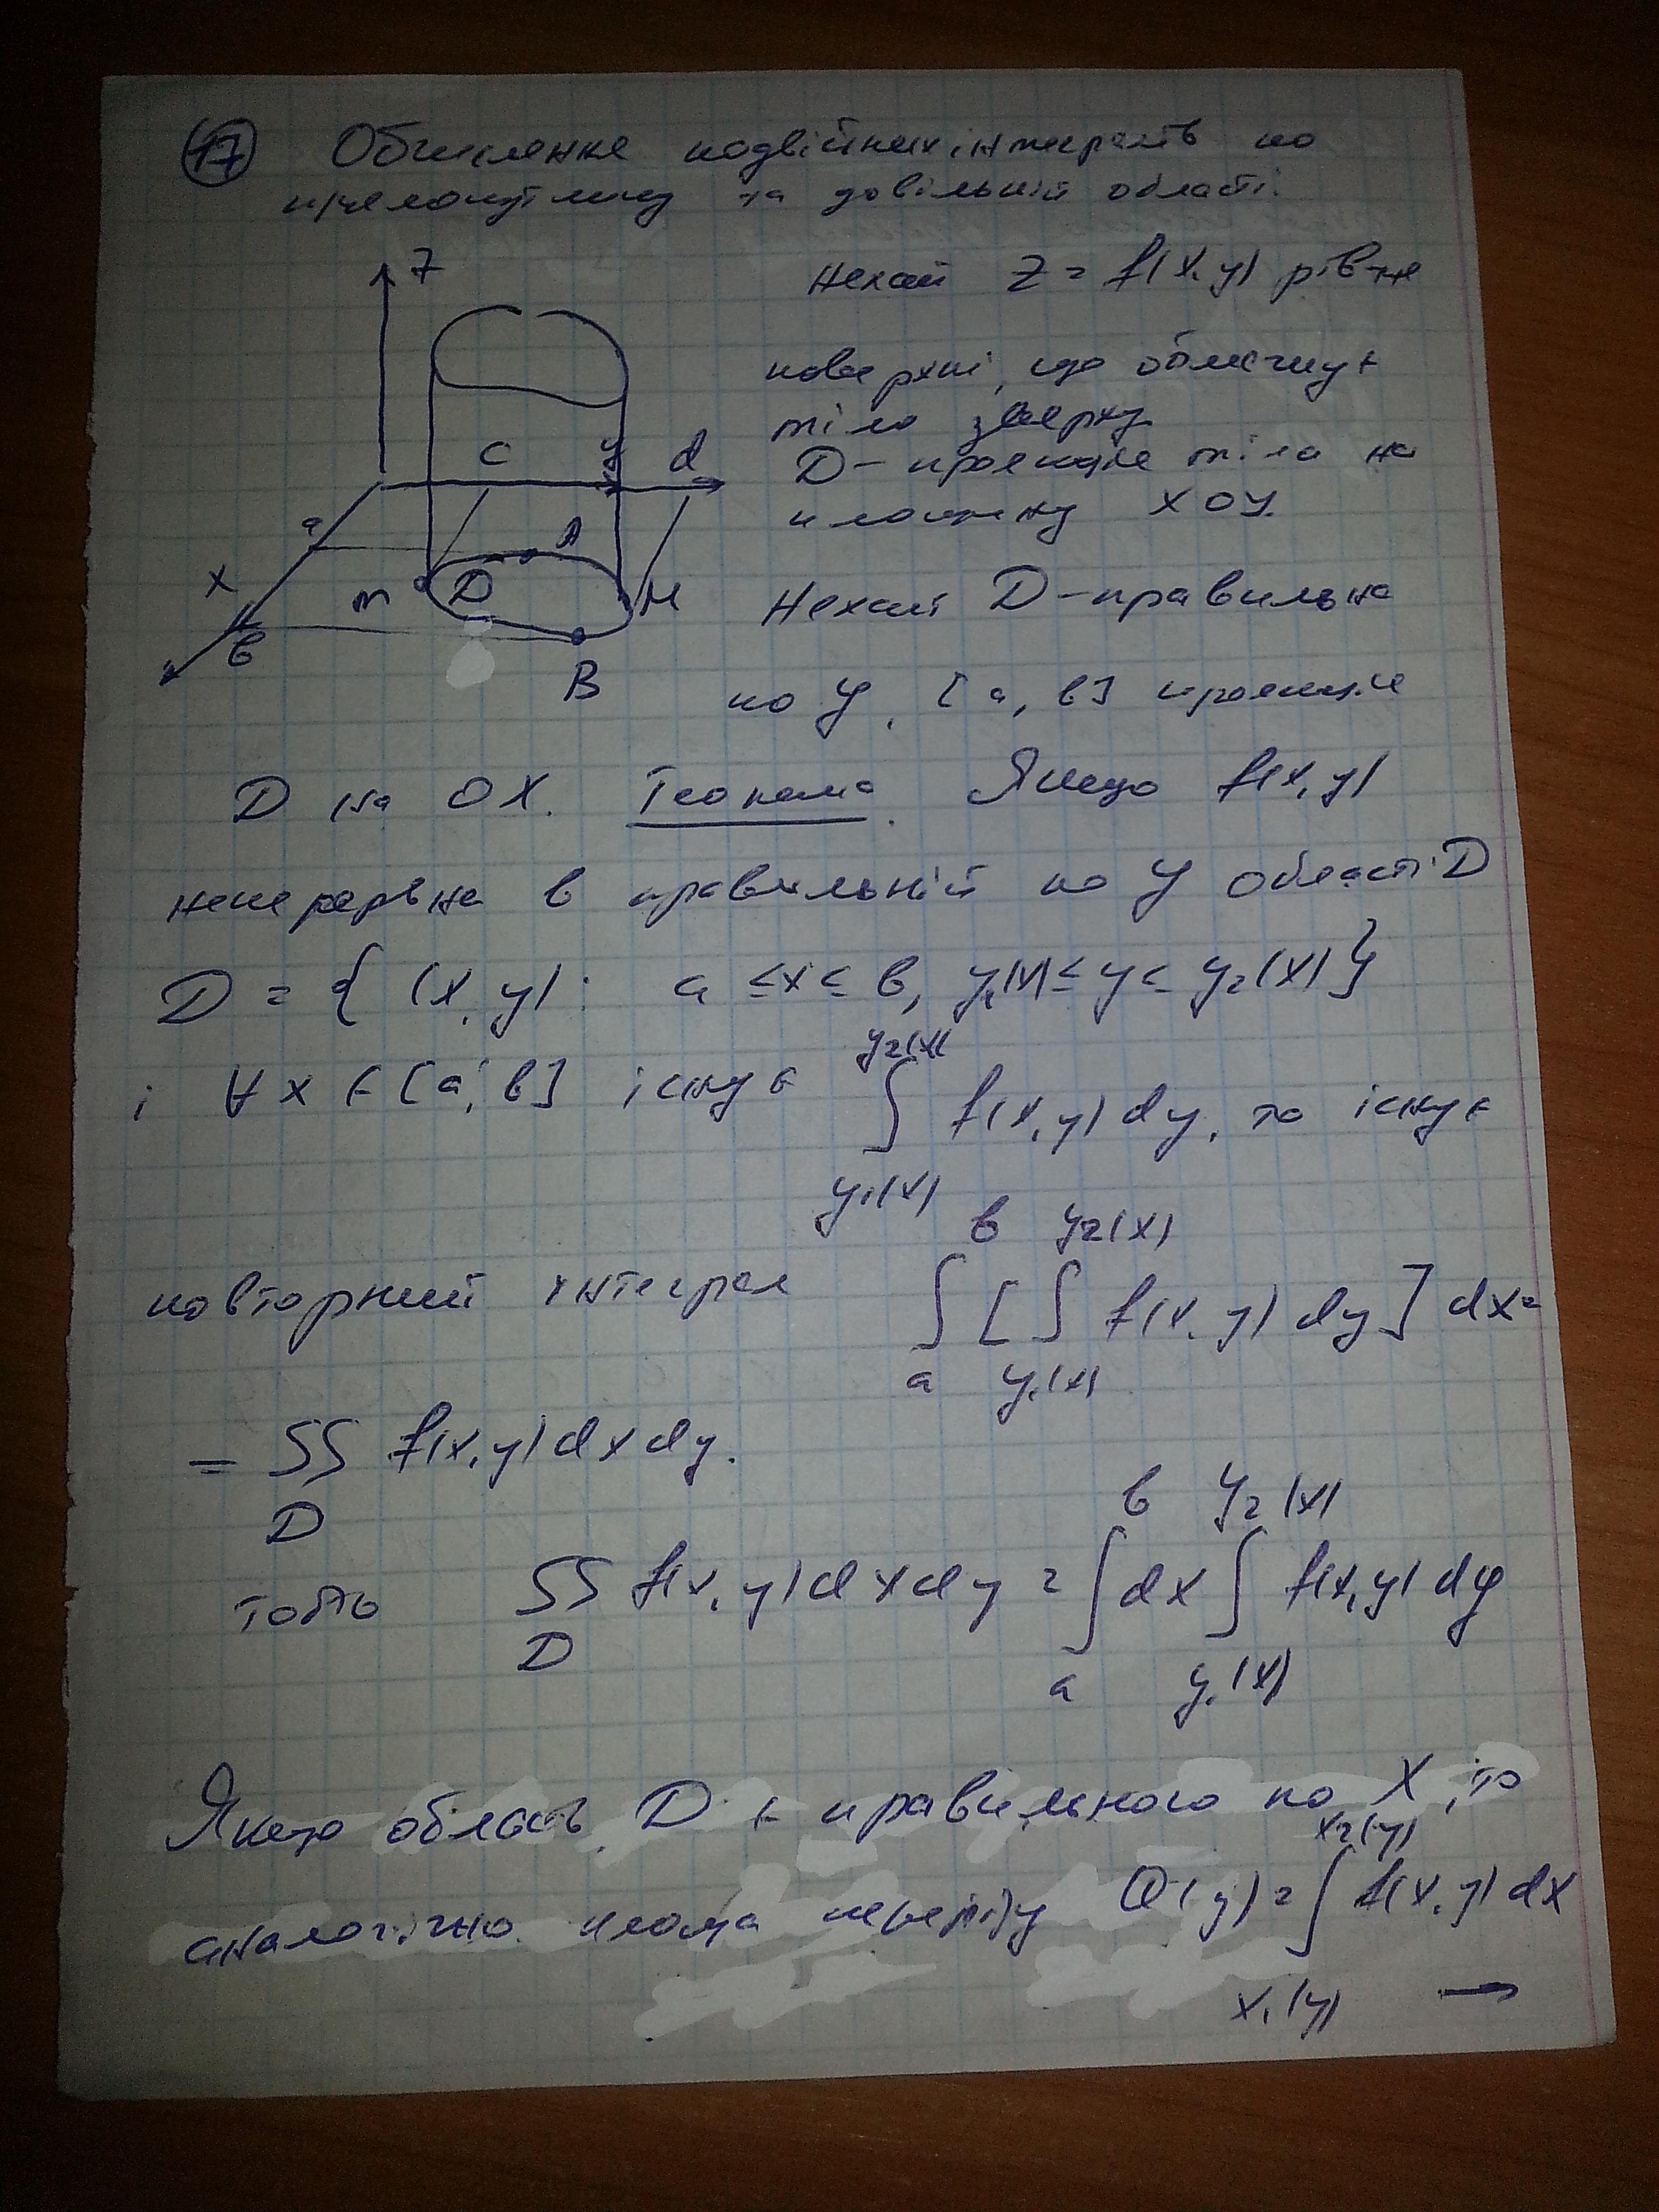 17 Обчислення подвійних інтегралів по
прямокутнику та довільній області.
Z
Нехай Z = f(x, y) рів-ня
поверхні, що обмежує
тіло зверху.
c y d
D - проекція тіла на
площину XOY.
a A
x m D H
Нехай D - правильна
в
B
по y, [a, в] проекція
D на OX. Теорема. Якщо f(x, y)
неперервна в правильній по y області D
D = { (x, y) : a ≤ x ≤ в, y₁(x) ≤ y ≤ y₂(x) }
і ∀ x ∈ [a, в] існує ∫_{y₁(x)}^{y₂(x)} f(x, y) dy, то існує
повторний інтеграл ∫_a^в [ ∫_{y₁(x)}^{y₂(x)} f(x, y) dy ] dx =
= ∬_D f(x, y) dx dy.
тобто ∬_D f(x, y) dx dy = ∫_a^в dx ∫_{y₁(x)}^{y₂(x)} f(x, y) dy
Якщо область D є правильною по X, то
аналогічно площа перерізу Q(y) = ∫_{x₁(y)}^{x₂(y)} f(x, y) dx →